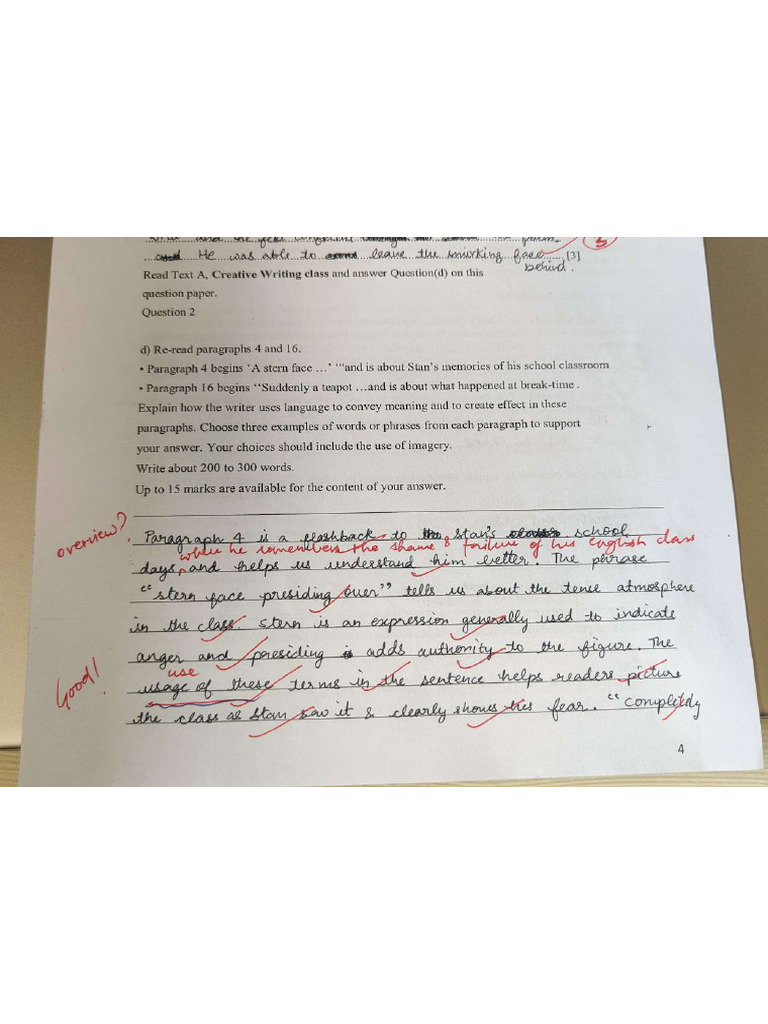 and the
He was able to leave the smirking face [3]
behind.
Read Text A, Creative Writing class and answer Question(d) on this
question paper.
Question 2
d) Re-read paragraphs 4 and 16.
• Paragraph 4 begins ‘A stern face …’ ‘“and is about Stan’s memories of his school classroom
• Paragraph 16 begins ‘‘Suddenly a teapot …and is about what happened at break-time .
Explain how the writer uses language to convey meaning and to create effect in these
paragraphs. Choose three examples of words or phrases from each paragraph to support
your answer. Your choices should include the use of imagery.
Write about 200 to 300 words.
Up to 15 marks are available for the content of your answer.
overview?
Paragraph 4 is a flashback to Stan's school
when he remembers the shame & failure of his English class
days, and helps us understand him better. The phrase
"stern face presiding over" tells us about the tense atmosphere
in the class. Stern is an expression generally used to indicate
anger and presiding adds authority to the figure. The
use
Good!
usage of these terms in the sentence helps readers picture
the class as Stan saw it & clearly shows his fear. "Completely
4